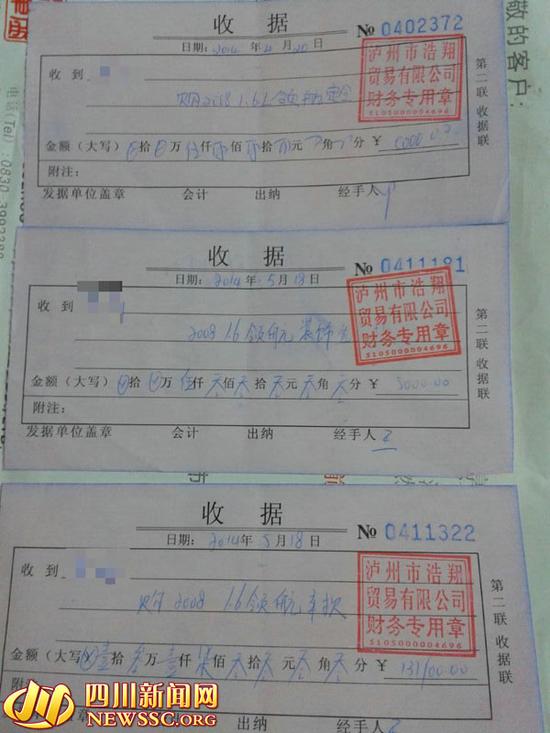 敬的客户:
电话(Tel):0830
收 据
№ 0402372
日期: 2014 年 4 月 20 日
收 到
购2008 1.6L 领航定金
泸州市浩翔
贸易有限公司
财务专用章
5105000004696
金额(大写) 拾 万 伍仟 佰 拾 元 角 分 ¥ 5000
附注:
发据单位盖章 会计 出纳 经手人
第二联 收据联
收 据
№ 0411181
日期: 2014 年 5 月 18 日
收 到
2008 1.6 领航 装饰
泸州市浩翔
贸易有限公司
财务专用章
5105000004696
金额(大写) 拾 万 伍仟 佰 拾 元 角 分 ¥ 5000.00
附注:
发据单位盖章 会计 出纳 经手人
第二联 收据联
收 据
№ 0411322
日期: 2014 年 5 月 18 日
收 到
购 2008 1.6 领航 车款
泸州市浩翔
贸易有限公司
财务专用章
5105000004696
金额(大写) 壹拾 万 壹仟 佰 拾 元 角 分 ¥ 131100.00
附注:
发据单位盖章 会计 出纳 经手人
第二联 收据联
四川新闻网
NEWSSC.ORG